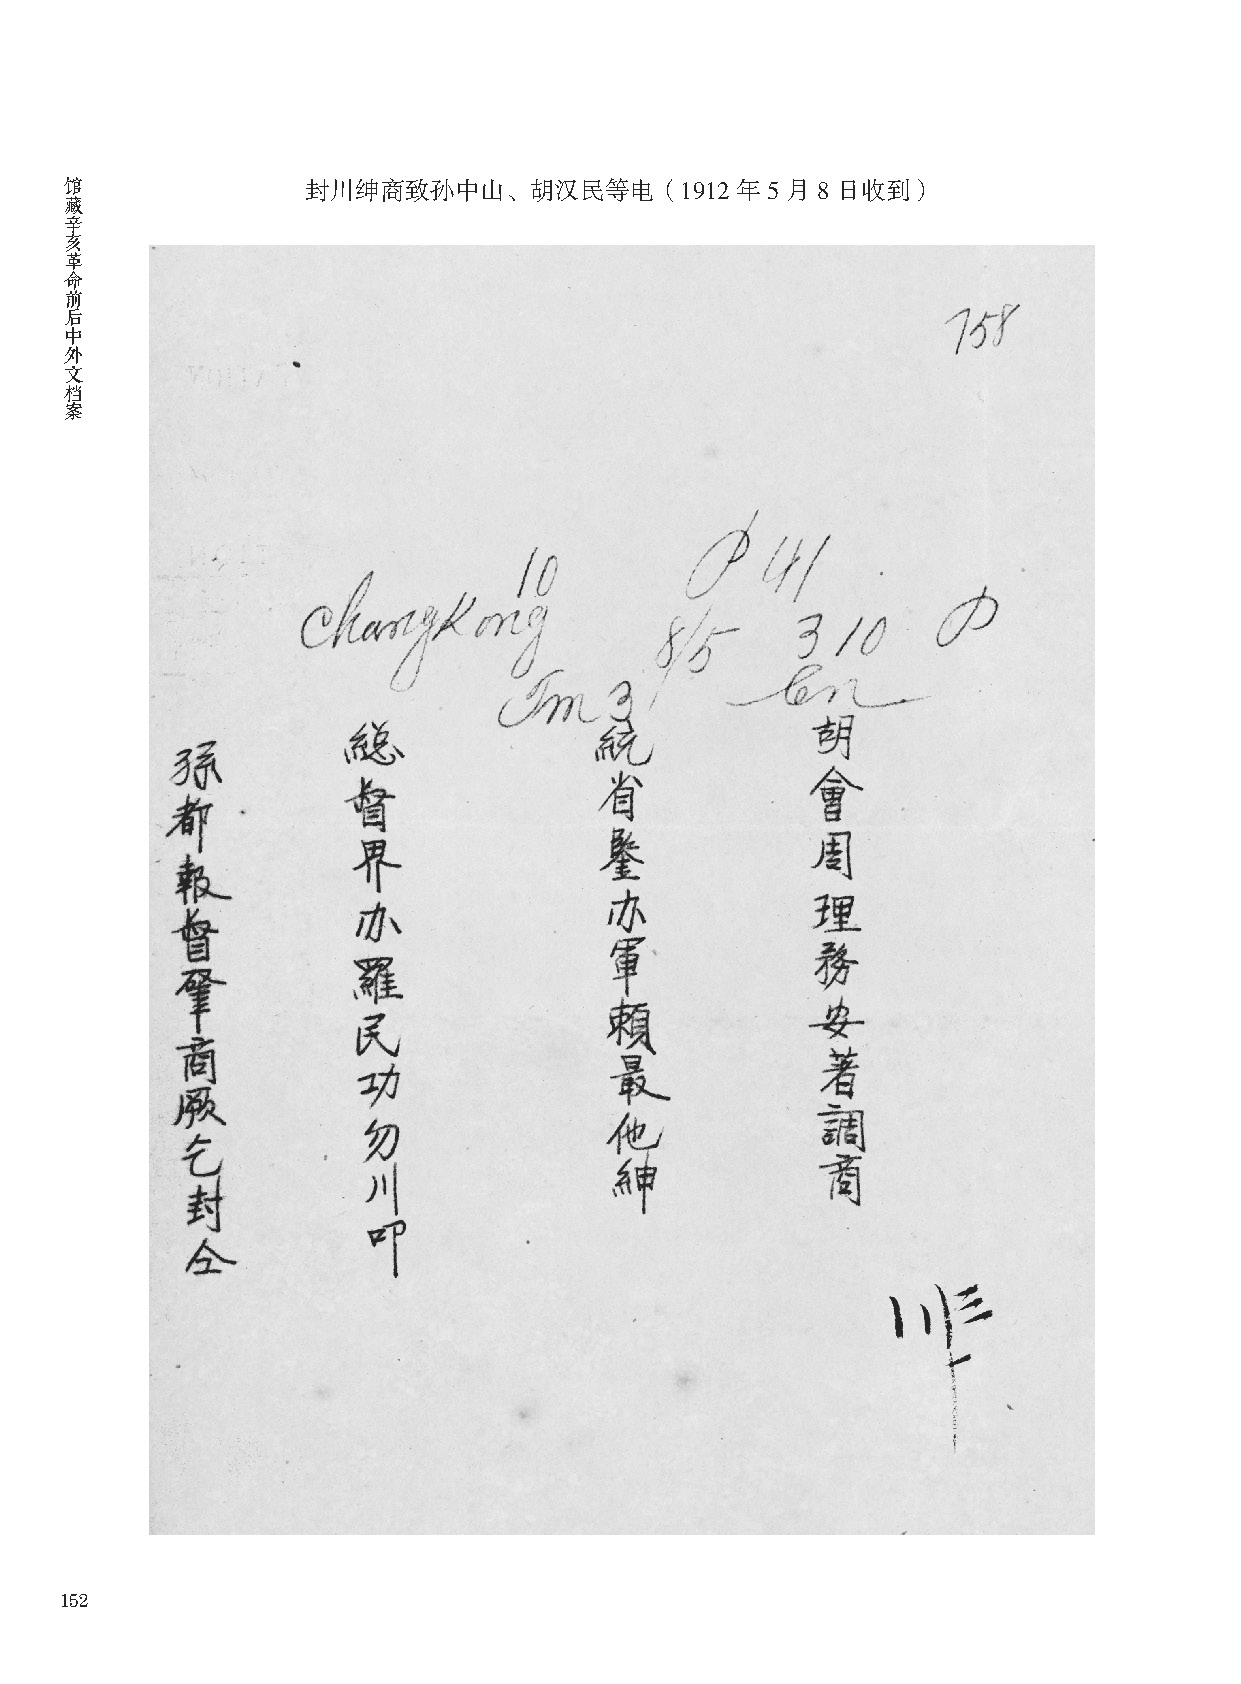 馆藏辛亥革命前后中外文档案
封川绅商致孙中山、胡汉民等电（1912 年 5 月 8 日收到）
758
10 P 41
Changkong 8/5 3 10 P
孫總統胡
都督省會
報界鑒周
督办办理
肇羅軍務
商民賴安
厥功最著
乞勿他調
封川紳商
仝叩
152